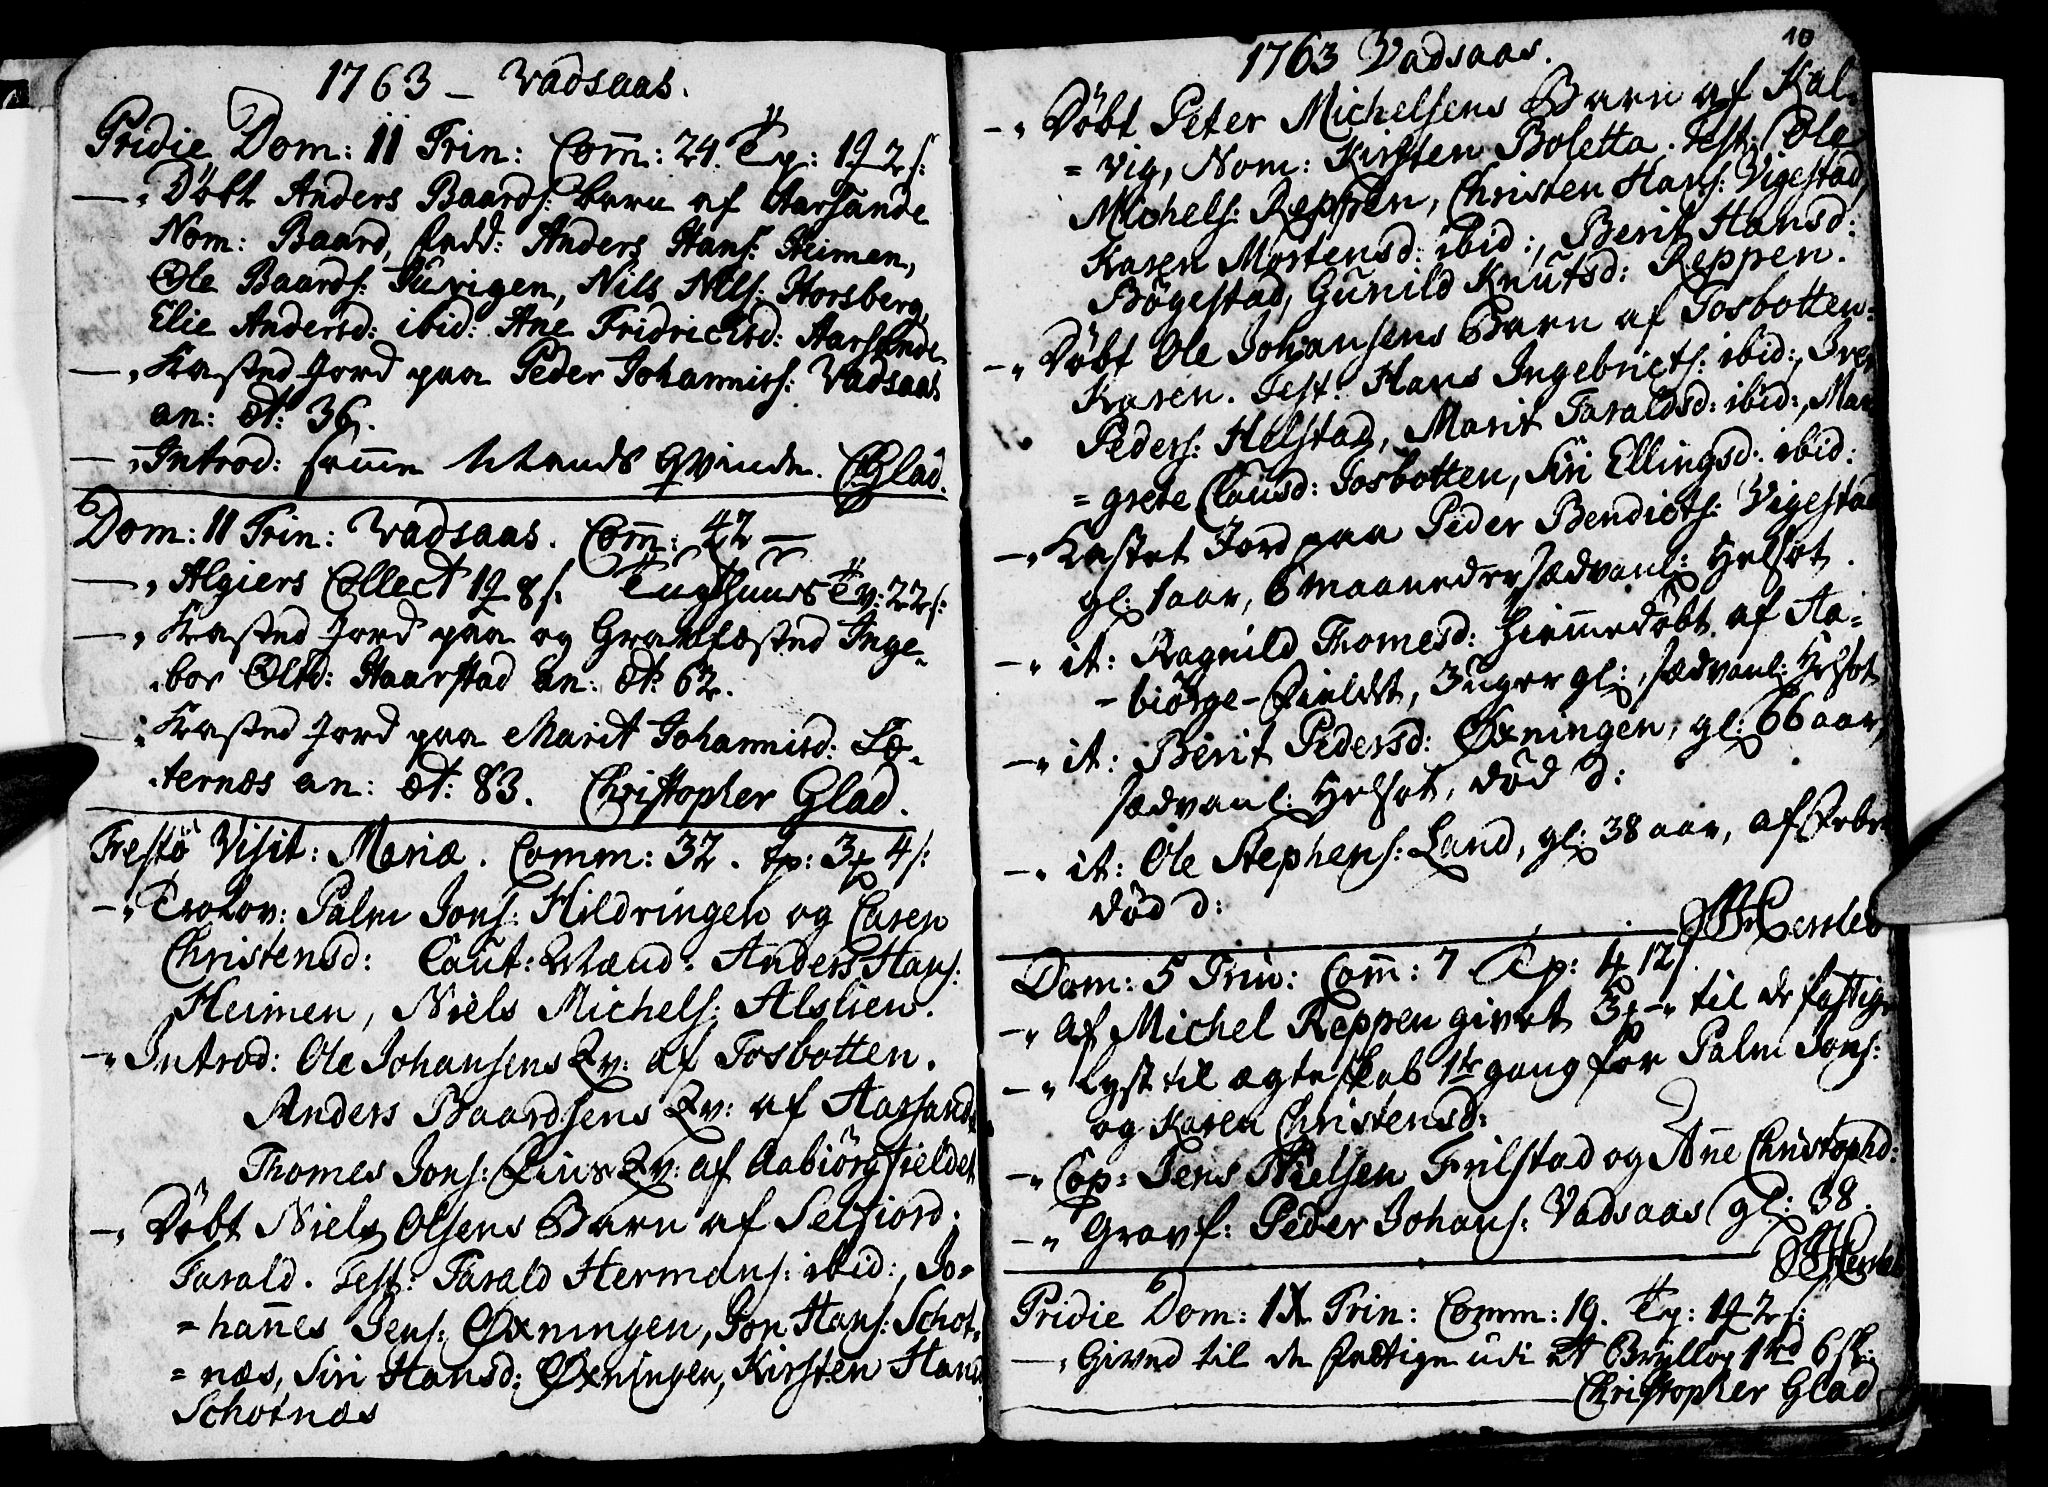 1763 – Vadsaas.
Pridie Dom: 11 Trin: Com̄: 24. Tp: 1 2 s:
— „ Döbt Anders Baards: barn af Aarsande
Nom: Baard, fadd: Anders Hans: Heimen,
Ole Baards: Turigen, Nils Nils: Horsberg,
Elie Andersd: ibid: Ane Fridrichsd: Aarsande
— „ Kasted Jord paa Peder Johanniss: Vadsaas
an: æt: 36.
— „ Introd: samme Mands Qvinde. CGlad.
Dom: 11 Trin: Vadsaas. Com̄: 42 —
— „ Algiers Collect 1 8 s. Tugthuus Tv: 22 s:
— „ Kasted Jord paa og Gravfæsted Inge-
-bor Olsd: Haarstad an: æt: 62.
— „ Kasted Jord paa Marit Johannisd: Sæ-
-ternæs an: æt: 83. Christopher Glad.
Festo Visit: Mariæ. Comm: 32. Tp: 3 4 s:
— „ Trolov: Palm Jons: Hildringen og Caren
Christensd: Caut: Mænd: Anders Hans:
Heimen, Niels Michels: Alslien.
— „ Introd: Ole Johansens Qv: af Tosbotten.
Anders Baardsens Qv: af Aarsande
Thomes Jons: Fiin Qv: af Aabiörgfieldet
— „ Döbt Niels Olsens Barn af Selfiord.
Tarald. Test: Tarald Hermans: ibid:, Jo=
=han̄es Jens: Øxningen, Jon Hans: Schot-
=næs, Siri Hansd: Øxningen, Kirsten Hansd
Schotnæs
10
1763 Vadsaas.
— „ Döbt Peter Michelsens Barn af Kal-
=vig, Nom: Kirsten Boletta. Test: Ole
Michels: Reppen, Christen Hans: Vigestad,
Karen Mortensd: ibid:, Berit Hansd:
Bögestad, Gunild Knutsd: Reppen.
— „ Döbt Ole Johansens Barn af Tosbotten:
Karen. Test: Hans Ingebricts: ibid:, Iver
Peders: Helstad, Marit Taraldsd: ibid:, Mar
=grete Clausd: Tosbotten, Siri Ellingsd: ibid:
— „ Kastet Jord paa Peder Bendicts: Vigestad
gl: 1 aar, 6 maaneder, sædvanl: Helsot.
— „ it: Ragnild Thomesd: hiemmedöbt af Aa-
-biörge-Fieldet, 3 uger gl:, sædvanl: Helsot
— „ it: Berit Pedersd: Øxningen, gl: 66 aar,
sædvanl: Helsot, död d:
— „ it: Ole Stephens: Land, gl: 38 aar, af Febre
död d:
Hersleb
Dom: 5 Trin: Com̄: 7 Tp: 1 12 s.
— „ Af Michel Reppen givet 3 — „ til de fattige
— „ Lyst til ægteskab 1te gang for Palm Jons:
og Karen Christensd:
— „ Cop: Jens Nielsen Fuilstad og Anne Christophd:
— „ Gravf: Peder Johans: Vadsaas gl: 38.
Hersleb
Pridie Dom: IX Trin: Comm: 19. Tp: 1 2 s:
— „ Gived til de Fattige udi et Bryllop 1 rd 6 sk:
Christopher Glad